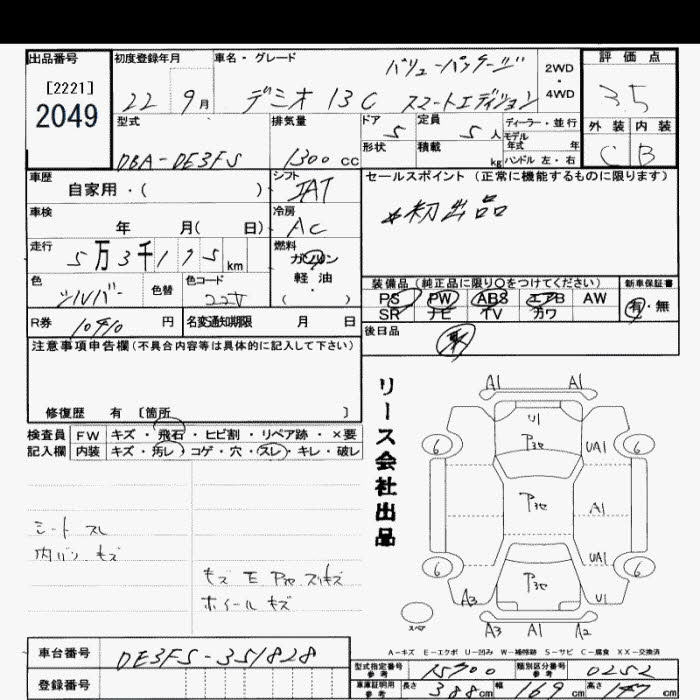 出品番号 初度登録年月 車名・グレード 評価点
[2221] バリューパッケージ 2WD
2049 22 9月 デミオ 13C スマートエディション 4WD 35
型式 排気量 ドア 5 定員 5人 ディーラー・並行 外装 内装
モデル年式 年
DBA-DE3FS 1300cc 形状 積載 kg ハンドル 左・右 C B
車歴 シフト セールスポイント(正常に機能するものに限ります)
自家用・( )
車検 冷房 *初出品
年 月( 日) AC
走行 燃料
5万3千175km ガソリン
色 色替 色コード 軽油
シルバー 22V ( ・ )
装備品(純正品に限り○をつけてください) 新車保証書
PS PW ABS エアB AW 有・無
SR ナビ TV カワ
R券 円 名変通知期限 月 日
後日品
注意事項申告欄(不具合内容等は具体的に記入して下さい)
修復歴 有 〔箇所 〕
検査員 FW キズ・飛石・ヒビ割・リペア跡・×要
記入欄 内装 キズ・汚レ・コゲ・穴・スレ・キレ・破レ
リース会社出品
A1 A1
U1
6 P3セ UA1 6
P3セ A1
UA1
6 P3セ 6
A3 U1
スペア A3 A1 A2
シート スレ
内バン キズ
キズ E P3セ スリキズ
ホイール キズ
A-キズ E-エクボ U-凹み W-補修跡 S-サビ C-腐食 XX-交換済
車台番号 DE3FS-351828
型式指定番号 参考 15900 類別区分番号 参考 0252
登録番号
車庫証明用 参考 長さ 388cm 幅 169cm 高さ cm